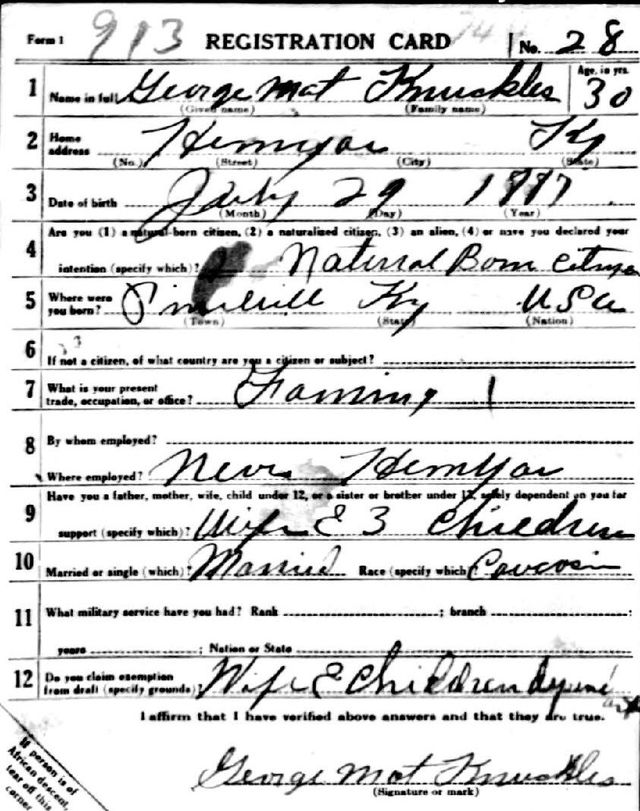 Form 1 913 REGISTRATION CARD No. 28
1 Name in full George Mat Knuckles Age, in yrs. 30
(Given name) (Family name)
2 Home address Hemyar Ky
(No.) (Street) (City) (State)
3 Date of birth July 29 1887
(Month) (Day) (Year)
Are you (1) a natural-born citizen, (2) a naturalized citizen, (3) an alien, (4) or have you declared your
4 intention (specify which)? Natural Born Citizen
5 Where were you born? Pineville Ky USA
(Town) (State) (Nation)
6 If not a citizen, of what country are you a citizen or subject?
7 What is your present trade, occupation, or office? Farming 1
8 By whom employed?
Where employed? Near Hemyar
Have you a father, mother, wife, child under 12, or a sister or brother under 12, solely dependent on you for
9 support (specify which)? Wife & 3 Children
10 Married or single (which)? Married Race (specify which) Caucasin
11 What military service have you had? Rank ; branch ;
years ; Nation or State
12 Do you claim exemption from draft (specify grounds)? Wife & Children
I affirm that I have verified above answers and that they are true.
George Mat Knuckles
(Signature or mark)
If person is of
African descent,
tear off this
corner.